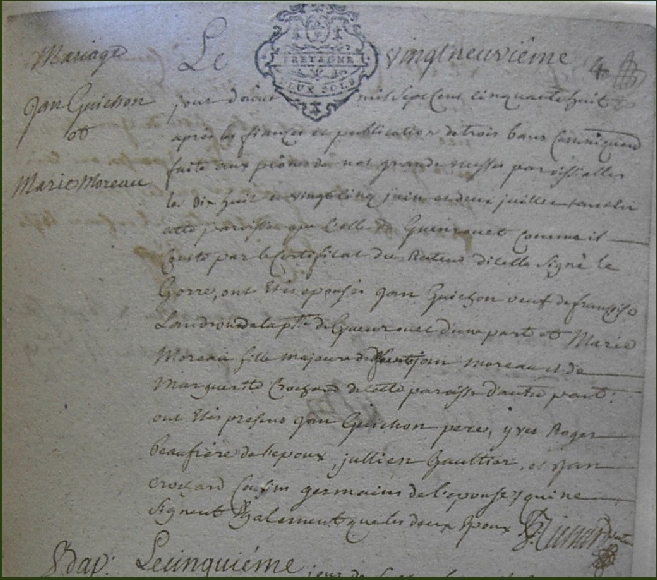 Mariage
Jan Guichon
et
Marie Moreau
Le vingtneuvième
BRETAGNE
DEUX SOLS
jour d'aout mil sept cent cinquante huit
après les fiancé et publication de trois bans canoniquem
faite aux prônes de nos grandes messes paroissialles
les dix huit et vingt cinq juin et deux juillet tant en
cette paroisse que celle de Guenrouet comme il
conste par le certificat du Recteur dicelle signé le
Gorre, ont étés epousés Jan Guichon veuf de françoise
Landron de la psse de Guenrouet d'une part et Marie
Moreau fille majeure de feu jan moreau et de
Marguerite Crochard de cette paroisse d'autre part:
ont étés presens jan Guichon pere, yves Roger
beaufrère de l'epoux, jullien Gauthier, et Jan
crochard cousins germains de l'epouse; qui ne
signent également que les deux epoux
Bap: Le cinquiéme